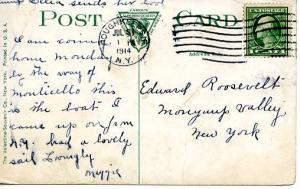 Delia sends her love
POST CARD
POUGHKEEPSIE
JUL
1 PM
1914
N.Y.
I am coming
home Monday
by the way of
Monticello this
is the boat I
came up on from
N.Y. had a lovely
sail Lovingly
Maggie
Edward Roosevelt
Mongaup Valley
New York
The Valentine-Souvenir Co., New York. Printed in U.S.A.